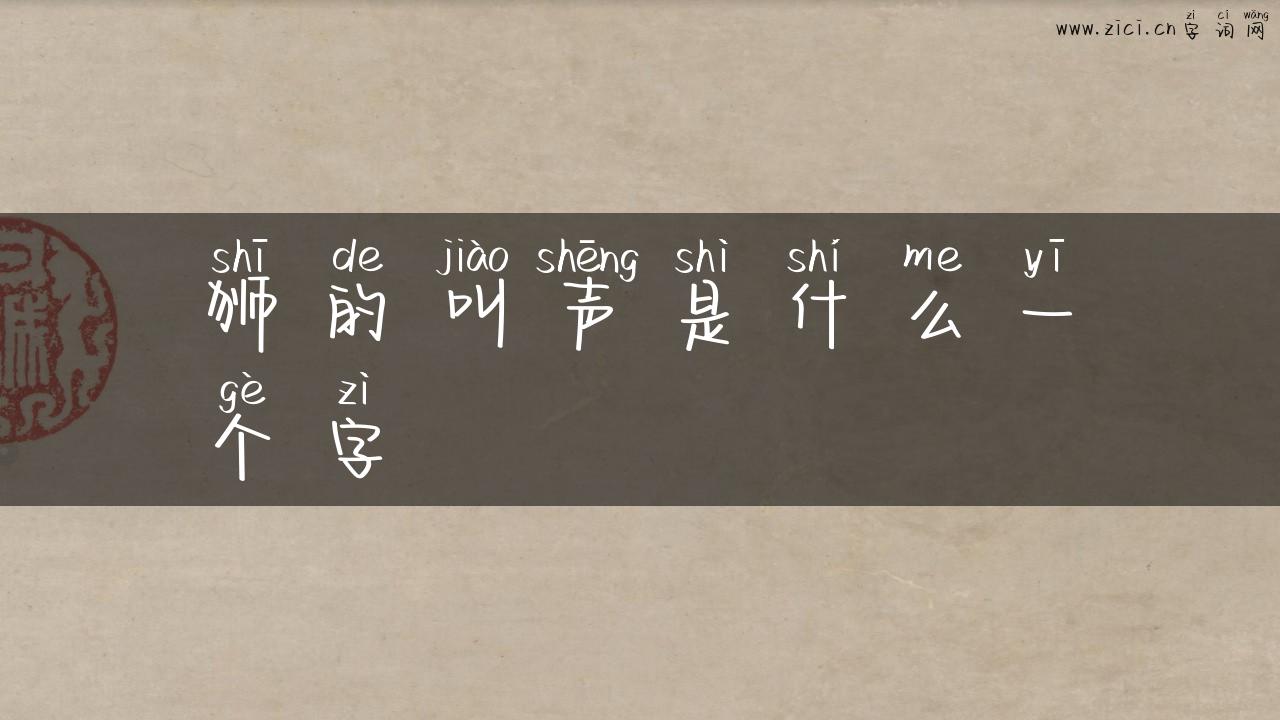 zì cí wǎng
www.zici.cn字词网
shī de jiào shēng shì shí me yī
狮的叫声是什么一
gè zì
个字